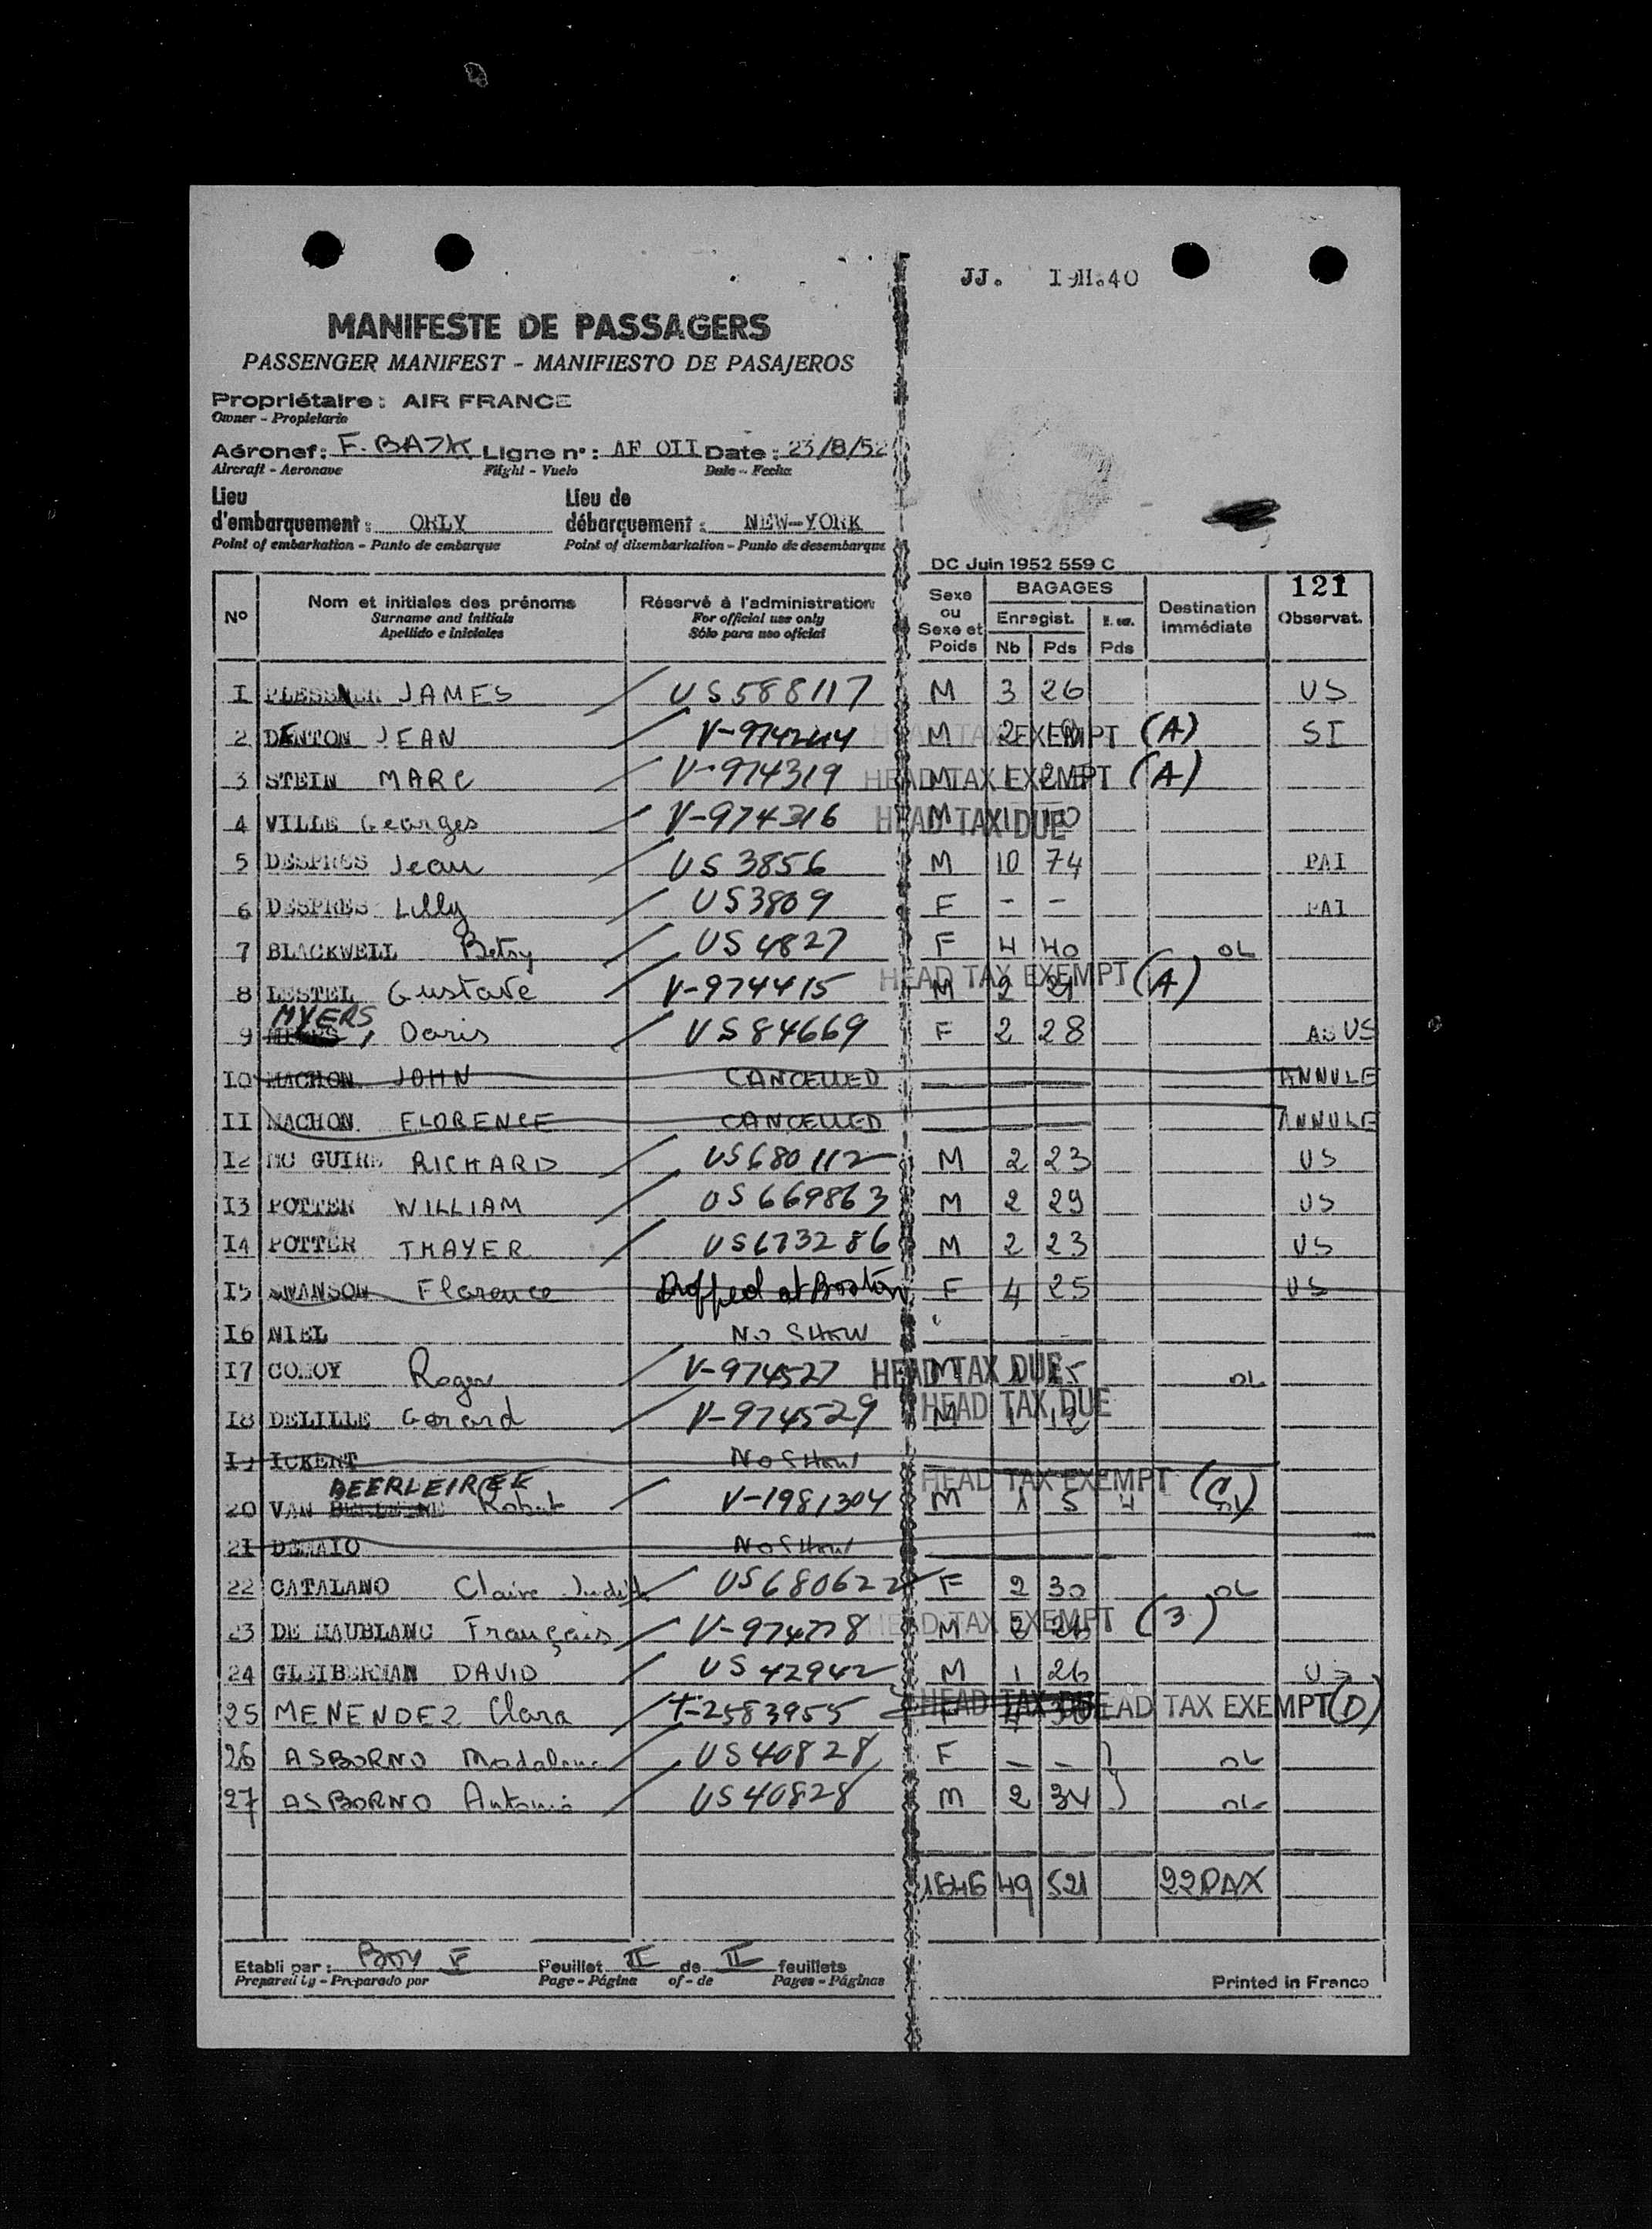 JJ. I9H.40
MANIFESTE DE PASSAGERS
PASSENGER MANIFEST - MANIFIESTO DE PASAJEROS
Propriétaire : AIR FRANCE
Owner - Propietario
Aéronef : F. BAZK Ligne n° : AF OII Date : 23/8/52
Aircraft - Aeronave Flight - Vuelo Date - Fecha
Lieu d'embarquement : ORLY Lieu de débarquement : NEW-YORK
Point of embarkation - Punto de embarque Point of disembarkation - Punto de desembarque
DC Juin 1952 559 C
121
N° Nom et initiales des prénoms Réservé à l'administration Sexe ou Sexe et Poids BAGAGES Destination immédiate Observat.
Surname and initials For official use only Enregist.
Apellido e iniciales Sólo para uso oficial Nb Pds Pds
I JAMES US 588117 M 3 26 US
2 DENTON JEAN M 2 HEAD TAX EXEMPT (A) SI
3 STEIN MARC V-974319 M 1 HEAD TAX EXEMPT (A)
4 VILLE Georges V-974316 M 1 HEAD TAX DUE
5 DESPRES Jean US 3856 M 10 74 PAI
6 DESPRES Lilly US3809 F - - PAI
7 BLACKWELL Betsy US 4827 F 4 40 OL
8 LESTEL Gustave V-974415 M 2 HEAD TAX EXEMPT (A)
9 MYERS, Doris US 84669 F 2 28 US
IO MACHON JOHN CANCELLED ANNULE
II MACHON FLORENCE CANCELLED ANNULE
I2 MC GUIRE RICHARD US680112 M 2 23 US
I3 POTTER WILLIAM US 669863 M 2 29 US
I4 POTTER THAYER US673286 M 2 23 US
I5 SWANSON Florence Dropped at Boston F 4 25 US
I6 NIEL NO SHOW
I7 Roger V-974527 M HEAD TAX DUE OL
I8 DELILLE Gerard V-974529 M 1 12 HEAD TAX DUE
I9 ICKERT No Show
20 VAN BEERLEIREK Robert V-1981304 M 1 5 4 HEAD TAX EXEMPT (C)
2I DEMAIO No Show
22 CATALANO Claire Judith US680622 F 2 30 OL
23 DE MAUBLANC Français V-974778 M 2 HEAD TAX EXEMPT (3)
24 GLEIBERMAN DAVID US 42942 M 1 26 US
25 MENENDEZ Clara T-2583955 F 4 HEAD TAX DUE HEAD TAX EXEMPT (D)
26 ASBORNO Madalena US 40828 F - - OL
27 ASBORNO Antonio US 40828 M 2 34 OL
1646 49 521 22 PAX
Etabli par : Feuillet II de II feuillets
Prepared by - Preparado por Page - Página of - de Pages - Páginas
Printed in France